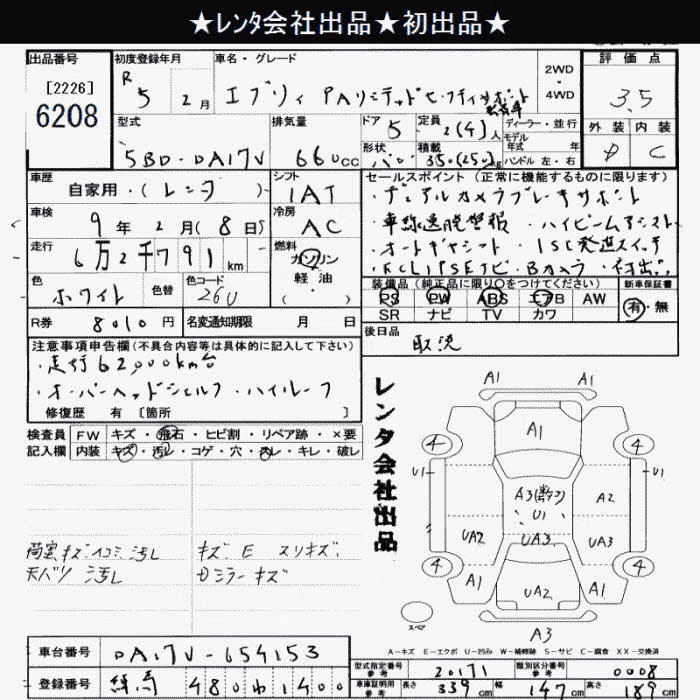 ★ﾚﾝﾀ会社出品★初出品★
出品番号
[2226]
6208
初度登録年月
R 5 2月
車名・グレード
エブリィ PAリミテッドセーフティサポート
2WD
4WD
評価点
3.5
外装 内装
D C
型式
5BD-DA17V
排気量
660cc
ドア 5
形状 バン
定員 2(4)人
積載 350(250)kg
ディーラー・並行
モデル年式 年
ハンドル 左・右
車歴
自家用・(レンタ)
シフト
IAT
車検
9年2月(8日)
冷房
AC
走行
6万2千791km
燃料
ガソリン
軽油
( )
色
ホワイト
色替
色コード
26U
R券 8010円
名変通知期限 月 日
セールスポイント(正常に機能するものに限ります)
・デュアルカメラブレーキサポート
・車線逸脱警報・ハイビームアシスト
・オートギヤシフト・ISC発進スイッチ
・ECLIPSEナビ・Bカメラ・初出品
装備品(純正品に限り○をつけてください)
新車保証書
PS PW ABS エアB AW
SR ナビ TV カワ
有・無
後日品
取説
注意事項申告欄(不具合内容等は具体的に記入して下さい)
・走行62,000km台
・オーバーヘッドシェルフ・ハイルーフ
修復歴 有 [箇所 ]
検査員記入欄
FW キズ・飛石・ヒビ割・リペア跡・×要
内装 キズ・汚レ・コゲ・穴・スレ・キレ・破レ
荷室キズ・ヘコミ汚レ
天バリ汚レ
キズ E スリキズ
Dミラーキズ
レンタ会社出品
A1 A1
A1
4 4
U1 U1
A3
U1
A2
UA2 UA3 UA3
4 4
A1 UA2 A1
A3
スペア
A-キズ E-エクボ U-凹み W-補修跡 S-サビ C-腐食 XX-交換済
車台番号 DA17V-654153
登録番号 練馬 480わ1400
型式指定番号 参考 20171
類別区分番号 参考 0008
車庫証明用 参考 長さ 339cm 幅 147cm 高さ 189cm